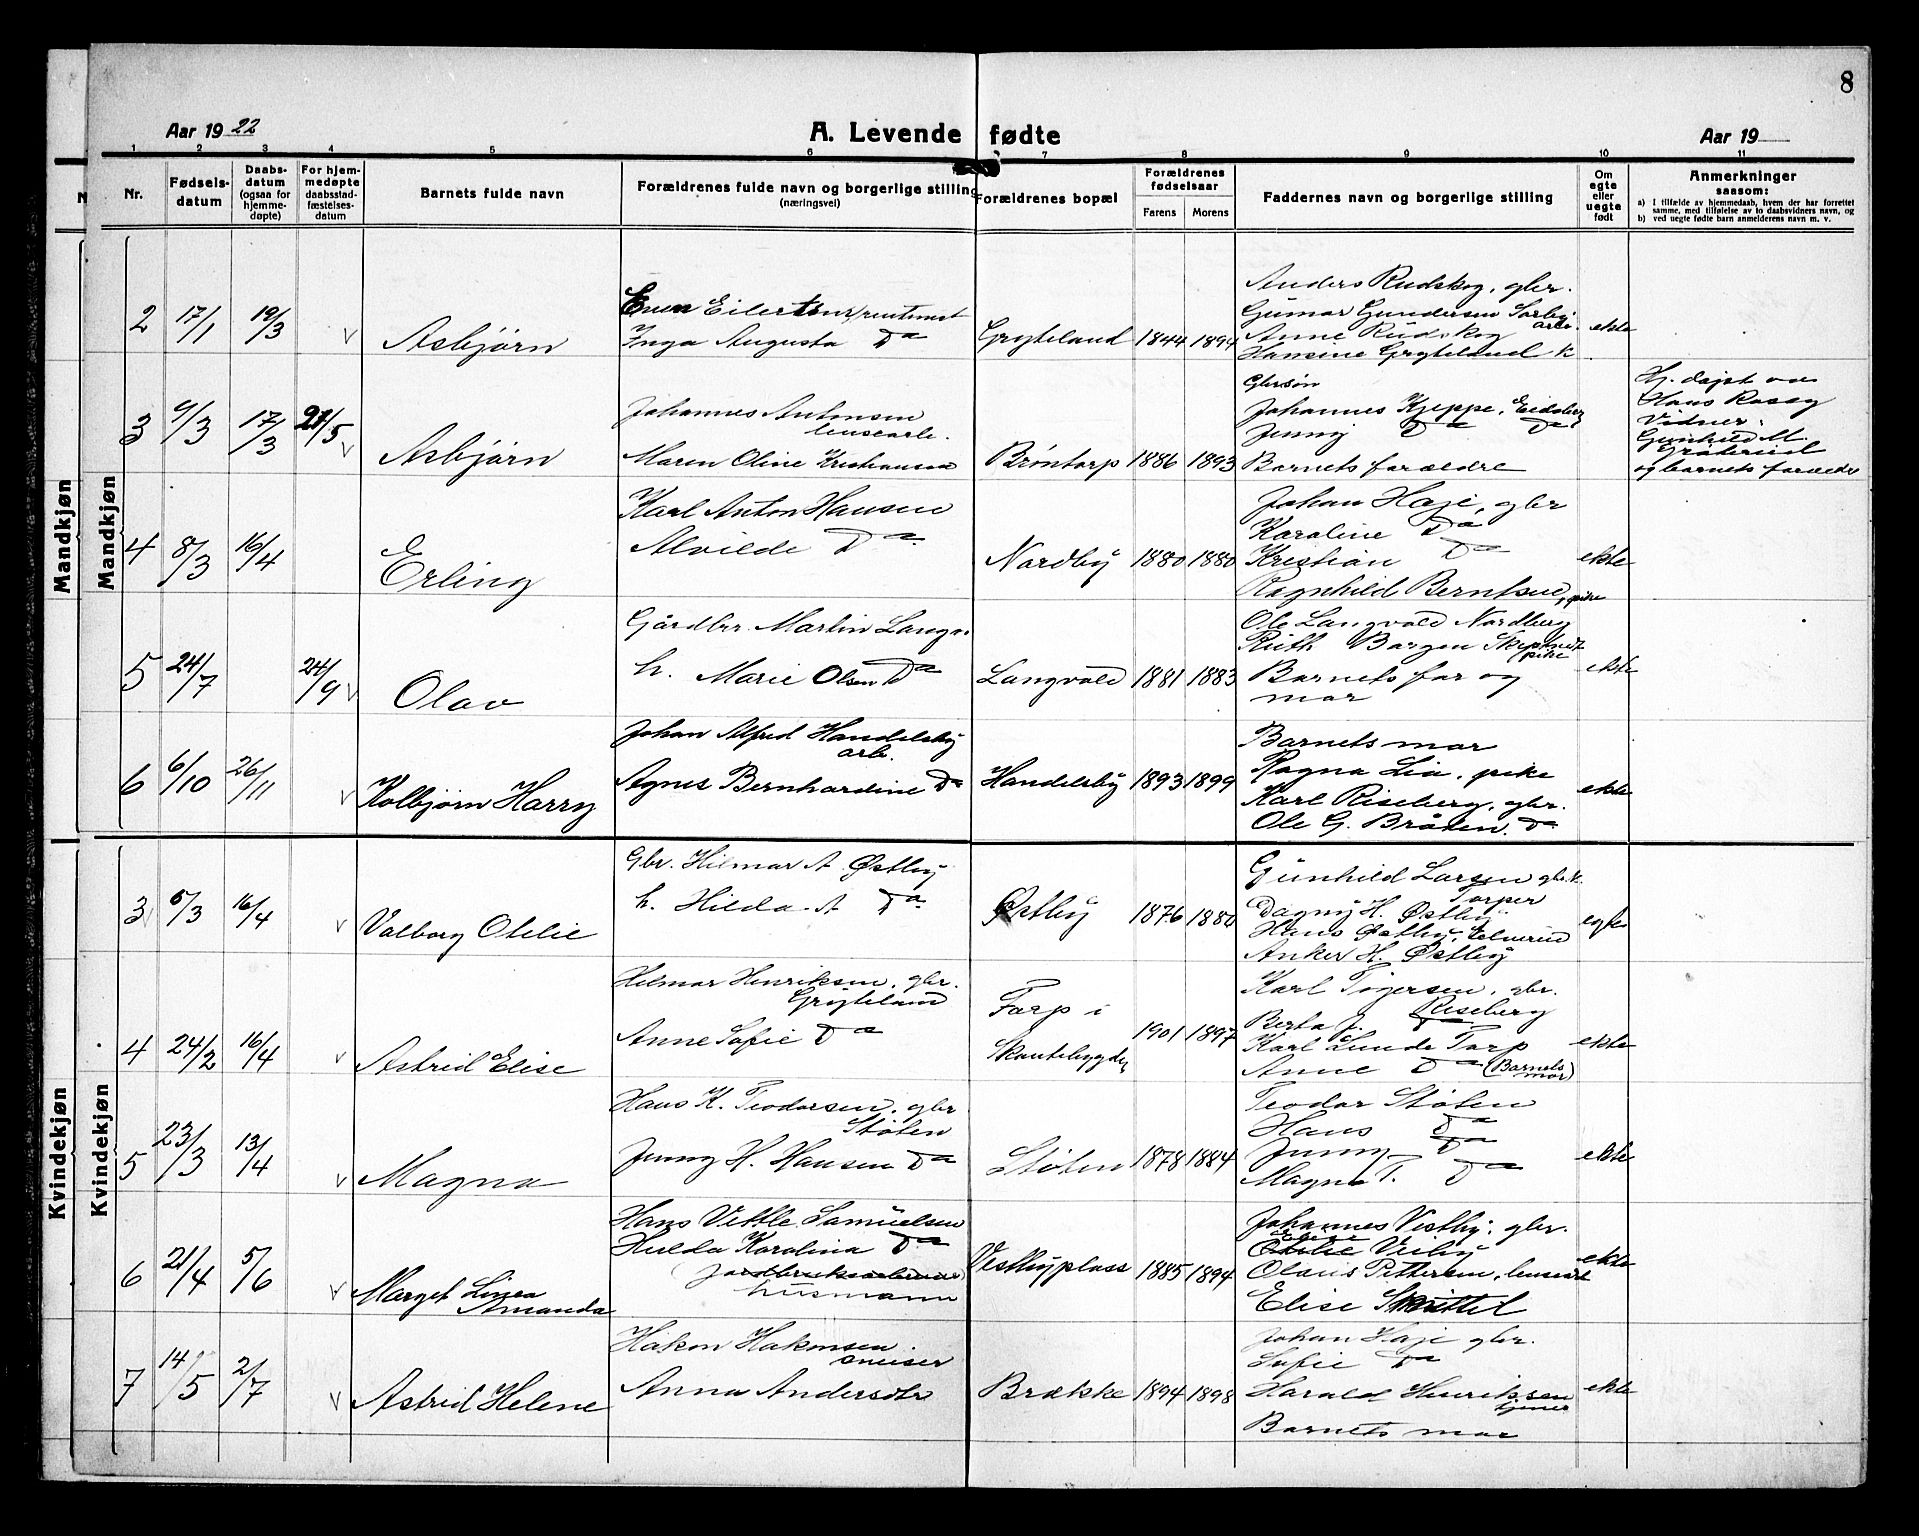 8
Aar 1922
A. Levende fødte
Aar 19
1 2 3 4 5 6 7 8 9 10 11
Nr.
Fødsels-
datum
Daabs-
datum
(ogsaa for
hjemme-
døpte)
For hjem-
medøpte
daabsstad-
fæstelses-
datum
Barnets fulde navn
Forældrenes fulde navn og borgerlige stilling
(næringsvei)
Forældrenes bopæl
Forældrenes
fødselsaar
Farens Morens
Faddernes navn og borgerlige stilling
Om
egte
eller
uegte
født
Anmerkninger
saasom:
a) I tilfælde av hjemmedaab, hvem der har forrettet
samme, med tilføielse av to daabsvidners navn, og
b) ved uegte fødte barn anmelderens navn m. v.
Mandkjøn
Mandkjøn
2 17/1 19/3 v Asbjørn
Even Eilertsen
Inga Augusta Do
Gryteland 1844 1894
Anders Rudskog, gbr.
Gunnar Gundersen
Anne Rudskog
Hansine Gryteland k
ekte
3 9/3 17/3 21/5 v Asbjørn
Johannes Antonsen
Maren Oline Kristiansen
Brøntorp 1886 1893
Gbrsøn
Johannes Kjeppe, Eidsberg
Jenny Do Do
Barnets forældre
Hj. døpt av
Hans Rasey
Vidner:
Gunhild M.
Gråterud
og barnets forældre
4 8/3 16/4 Erling
Karl Anton Hansen
Alvilde Do
Nordby 1880 1880
Johan Haje, gbr
Karoline Do
Kristian Do
Ragnhild Berntsen, pike
ekte
5 24/7 24/9 v Olav
Gårdbr. Martin Langv.
h. Marie Olsen Do
Langvold 1881 1883
Ole Langvold Nordberg
Ruth Bergen
pike
Barnets far og
mor
ekte
6 6/10 26/11 v Kolbjørn Harry
Johan Alfred Handelsby
arb.
Agnes Bernhardine Do
Handelsby 1893 1899
Barnets mor
Ragna Lia, pike
Karl Riseberg, gbr.
Ole G. Bråten. Do
ekte
Kvindekjøn
Kvindekjøn
3 5/3 16/4 v Valborg Otelie
Gbr. Hilmar A. Østby
h. Hilda A Do
Østby 1876 1880
Gunhild Larsen gbr.k.
Torper
Dagny H. Østby
Hans Østby,
Anker H. Østby
egte
4 24/2 16/4 v Astrid Elise
Hilmar Henriksen, gbr.
Gryteland
Anne Sofie Do
Torp i
Skautebygden
1901 1897
Karl Tojersen, gbr.
Riseberg
Berta J. Do
Karl Lunde Torp
Anne Do (Barnets
mor)
ekte
5 23/3 13/4 v Magna
Hans K. Teodorsen, gbr
Støten
Jenny H. Hansen Do
Støten 1878 1884
Teodor Støten
Hans Do
Jenny Do
Magna T. Do
ekte
6 21/4 5/6 v Marget Linea
Amanda
Hans Vettle Samuelsen
Hulda Karolina Do
husmann
Vestbyplass 1885 1894
Johannes Vestby, gbr.
Veiby
Olaus Pettersen, lensarb
Elise Skittel
ekte
7 14/5 2/7 v Astrid Helene
Håkon Håkonsen
Anna Andersdtr
Brække 1894 1898
Johan Haje gbr.
Sofie Do
Harald Henriksen
tjener
Barnets mor
ekte